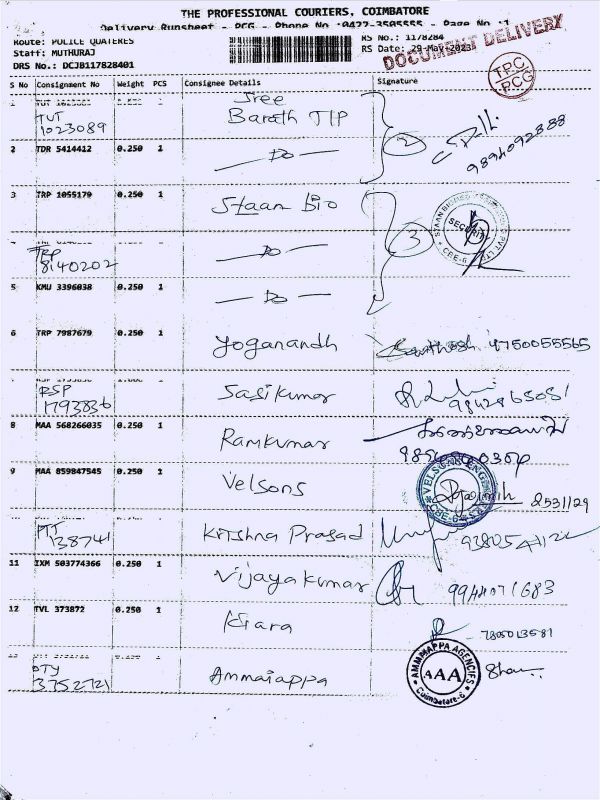 THE PROFESSIONAL COURIERS, COIMBATORE
Delivery Runsheet - PCG - Phone No :0422-3505555 - Page No :1
Route: POLICE QUATERES
Staff: MUTHURAJ
DRS No.: DCJB117828401
RS No.: 1178284
RS Date: 29-May-2023
DOCUMENT DELIVERY
TPC
PCG
S No Consignment No Weight PCS Consignee Details Signature
TUT 1023089 Sree Barath TIP 2 9894092888
2 TDR 5414412 0.250 1 — Do —
3 TRP 1055179 0.250 1 Staan Bio 3
SECURITY
CBE-6
TRP 8140202 — Do —
5 KMU 3396038 0.250 1 — Do —
6 TRP 7987679 0.250 1 Yoganandh 9750055565
RSP 1793836 Sasikumar
8 MAA 568266035 0.250 1 Ramkumar
9 MAA 859847545 0.250 1 Velsons 2531129
PTT 138741 Krishna Prasad
11 IXM 503774366 0.250 1 Vijayakumar
12 TVL 373872 0.250 1 Kiara 7805013581
OTY 3752721 Ammaiappa
AMMAIAPPA AGENCIES
AAA
Coimbatore-6